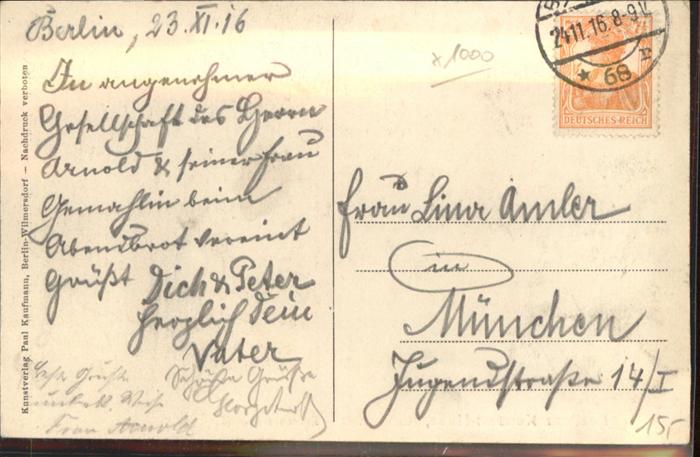 Berlin, 23. XI. 16
In angenehmer
Gesellschaft des Herrn
Arnold & seiner Frau
Gemahlin beim
Abendbrot vereint
Grüßt Dich & Peter
herzlich Dein
Vater
Schöne Grüße
Frau Arnold
Kunstverlag Paul Kaufmann, Berlin-Wilmersdorf — Nachdruck verboten
x1000
24.11.16. 8-9V.
* 68
DEUTSCHES REICH
Frau Lina Amler
in
München
Jugendstraße 14/I
15,-